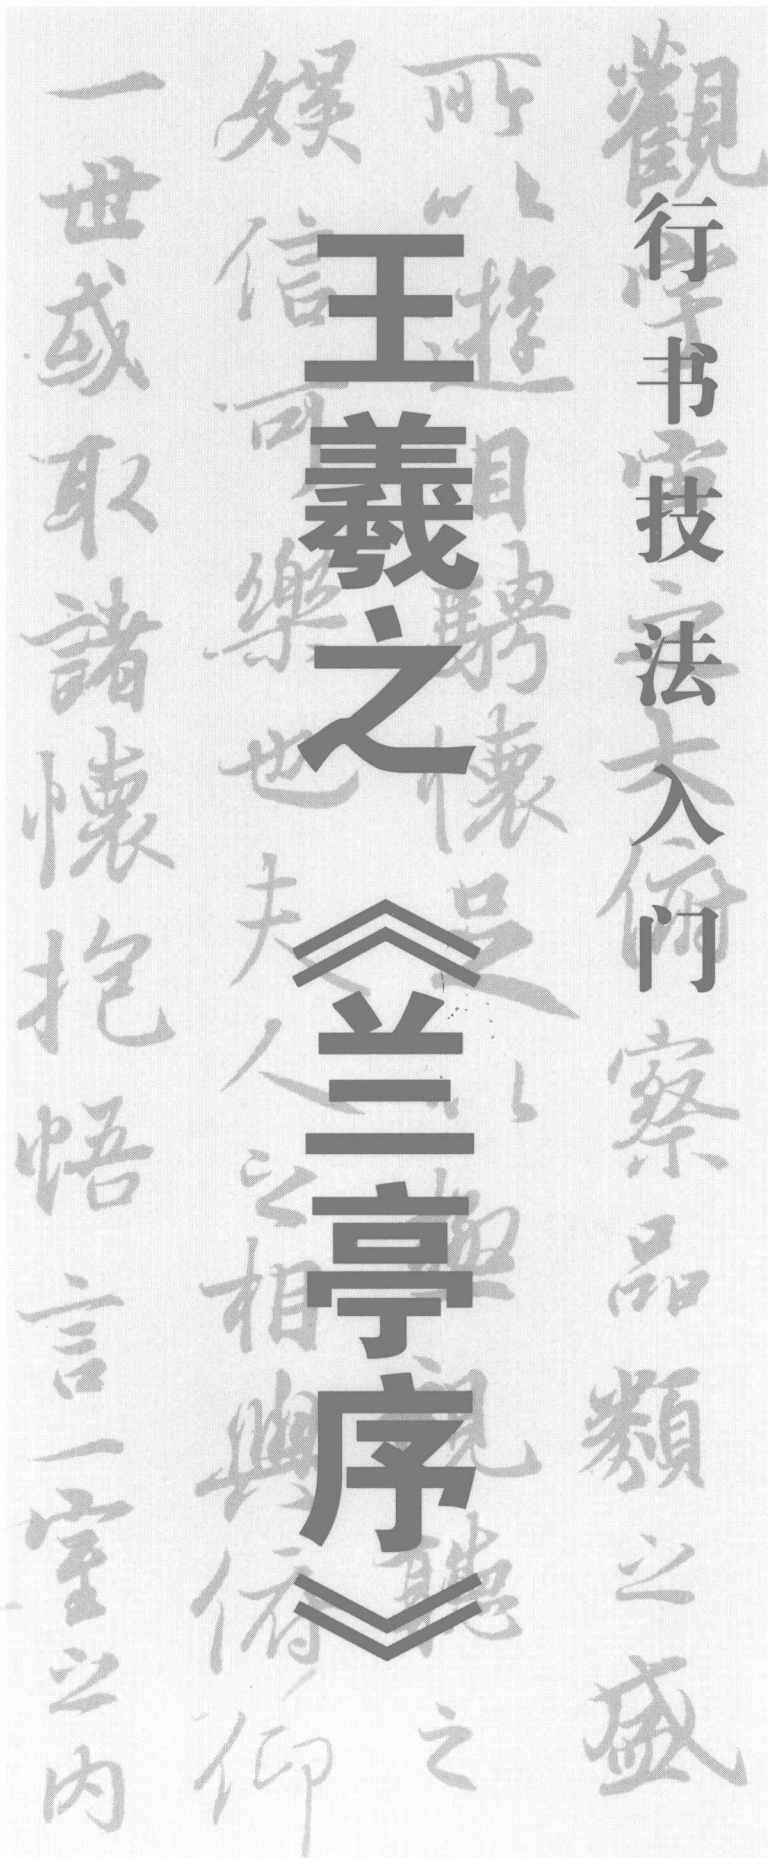 行书技法入门
王羲之《兰亭序》
觀宇宙之大俯察品類之盛
所以遊目騁懷足以極視聽之
娛信可樂也夫人之相與俯仰
一世或取諸懷抱悟言一室之内